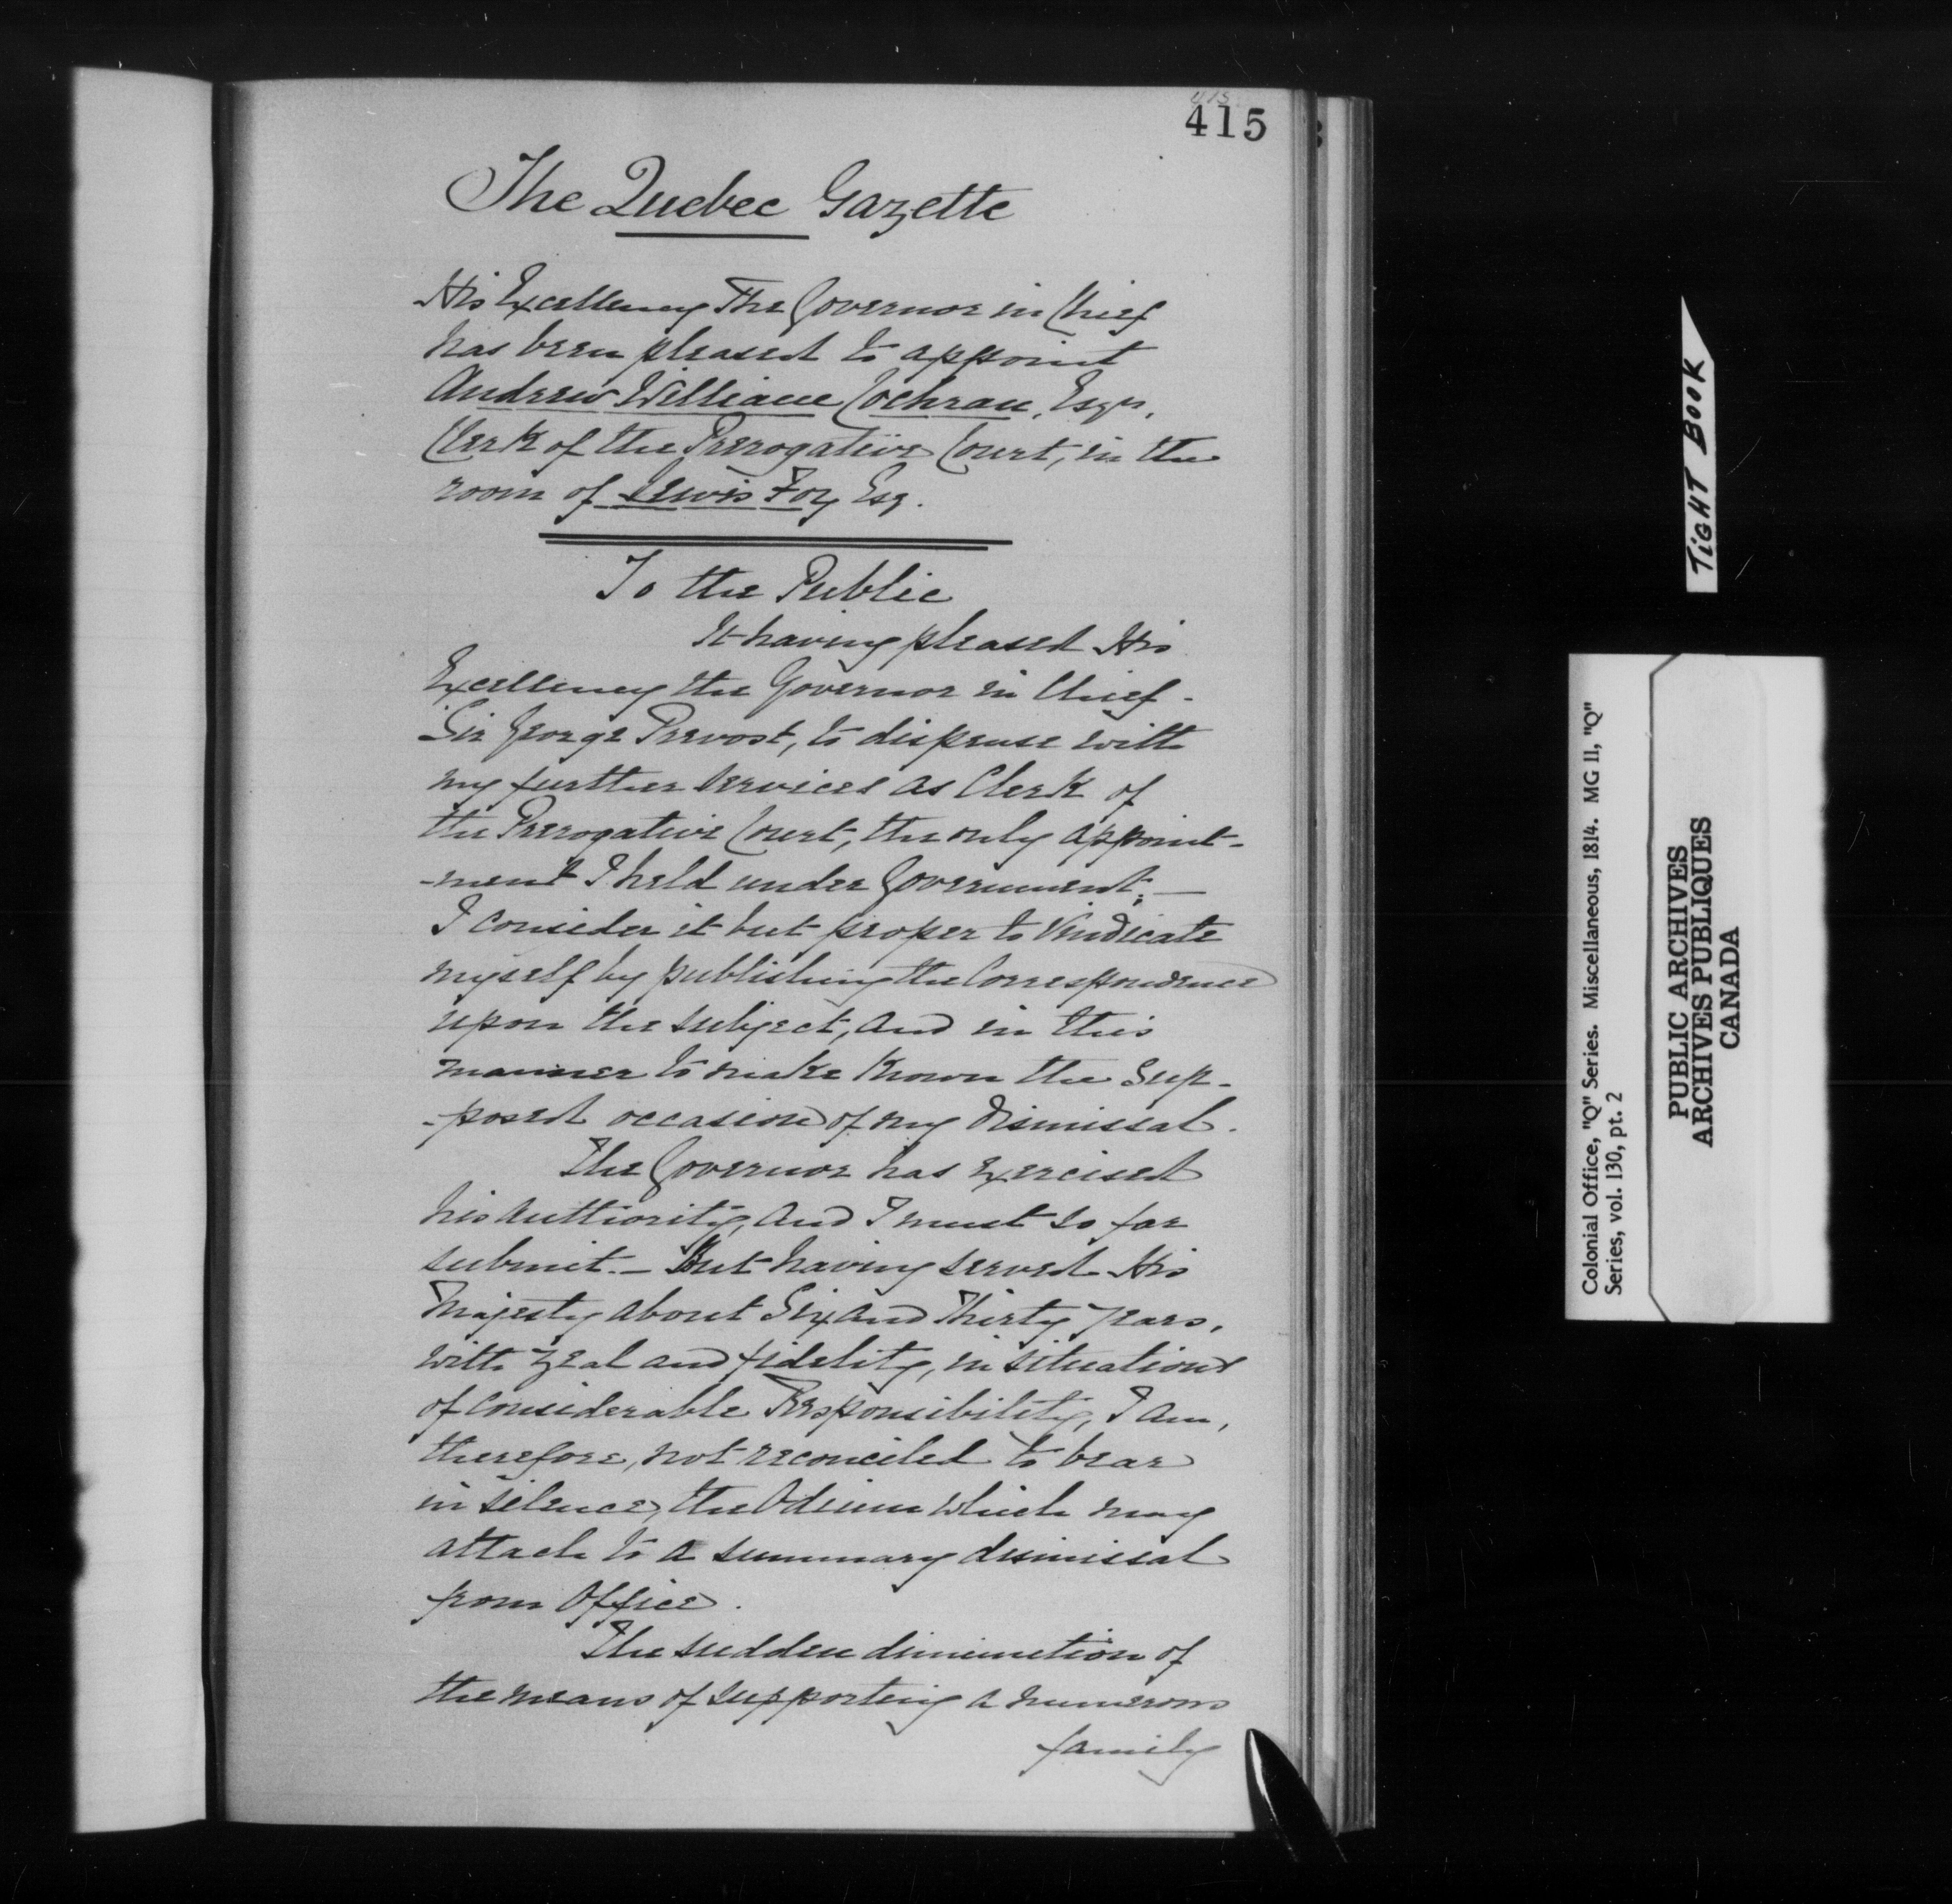 415
415
The Quebec Gazette
His Excellency The Governor in Chief
has been pleased to appoint
Andrew William Cochran, Esqr.
Clerk of the Prerogative Court, in the
room of Lewis Foy Esq.
To the Public
It having pleased His
Excellency the Governor in Chief -
Sir George Prevost, to dispense with
my further services as Clerk of
the Prerogative Court, the only appoint-
-ment I held under Government; —
I consider it but proper to Vindicate
myself by publishing the Correspondence
upon the subject, and in this
manner to make Known the Sup-
-posed occasion of my Dismissal.
The Governor has exercised
his authority, and I must so far
submit. — But having served His
Majesty about Six and Thirty years,
with zeal and fidelity, in situations
of Considerable Responsibility, I am,
therefore, not reconciled to bear
in silence, the Odium which may
attach to a summary dismissal
from Office.
The sudden diminution of
the means of supporting a numerous
family
TIGHT BOOK
Colonial Office, "Q" Series. Miscellaneous, 1814. MG 11, "Q"
Series, vol. 130, pt. 2
PUBLIC ARCHIVES
ARCHIVES PUBLIQUES
CANADA